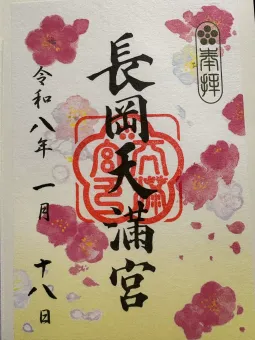 奉拝
長岡天満宮
令和八年 一月 十八日